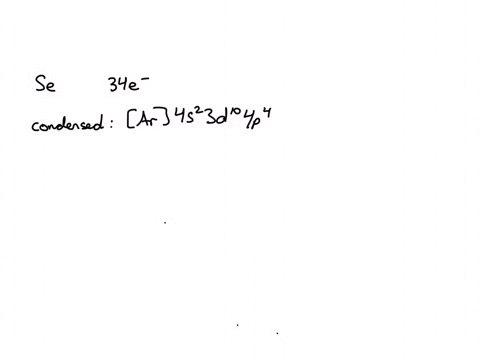 Se 34e⁻
condensed: [Ar]4s²3d¹⁰4p⁴